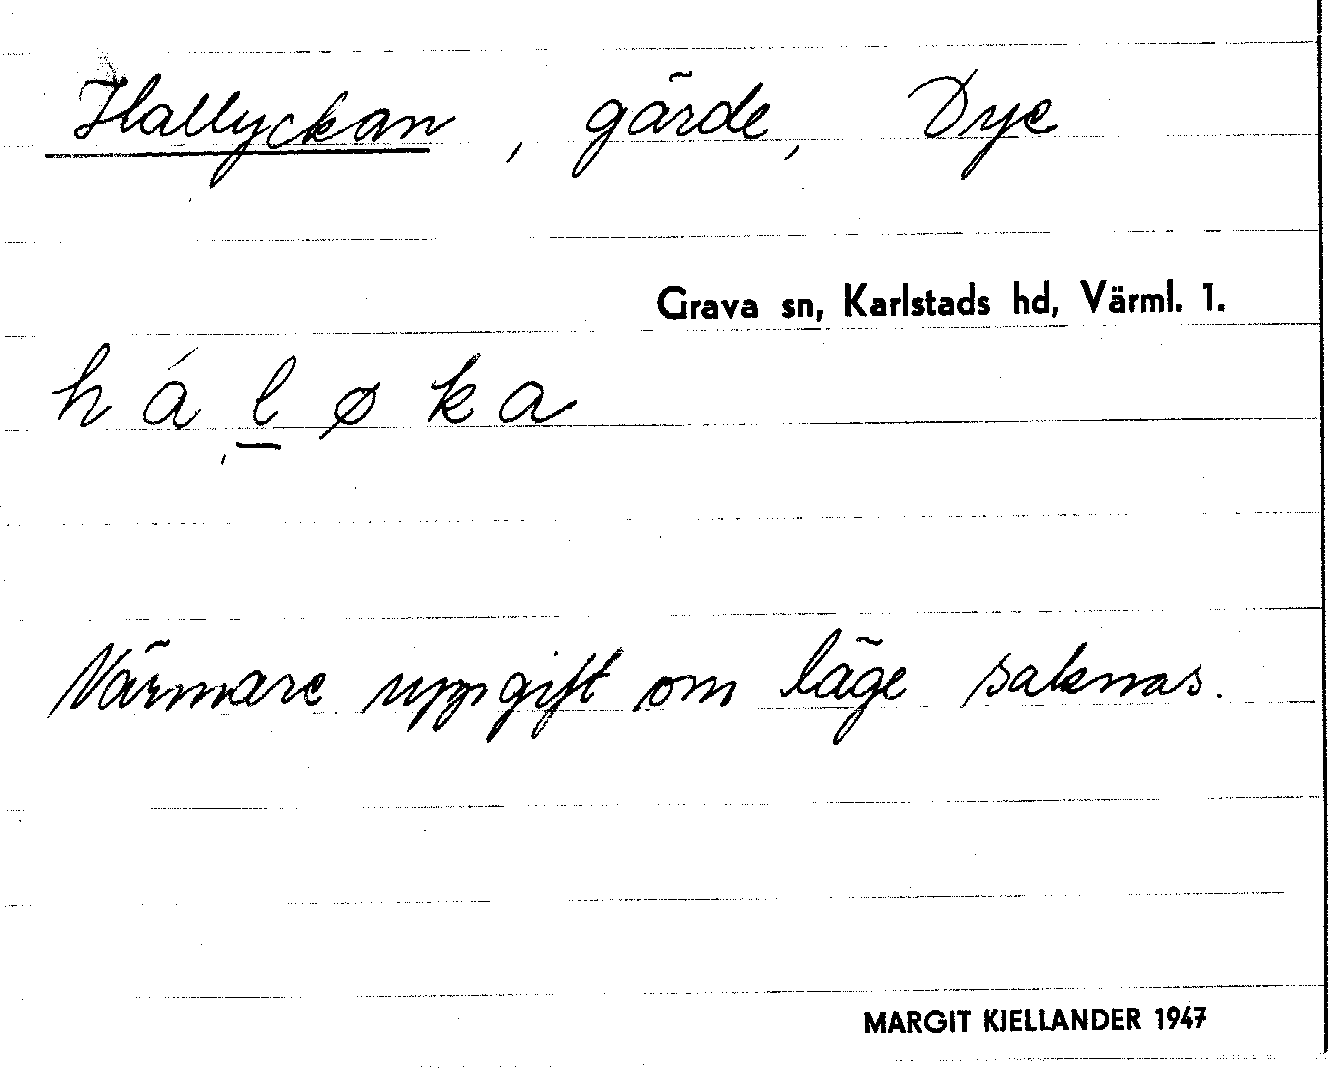 Hallyckan, gärde, Dye
Grava sn, Karlstads hd, Värml. 1.
há l̲ ø k a
Närmare uppgift om läge saknas.
MARGIT KJELLANDER 1947